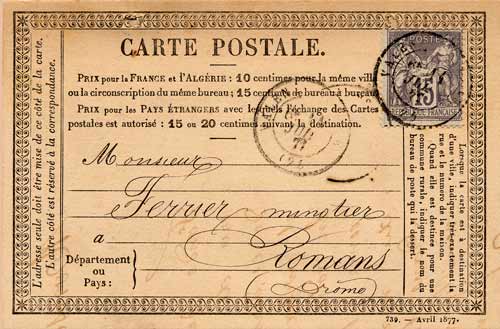 CARTE POSTALE.
PRIX pour la FRANCE et l'ALGÉRIE : 10 centimes pour la même ville
ou la circonscription du même bureau ; 15 centimes de bureau à bureau
PRIX pour les PAYS ÉTRANGERS avec lesquels l'échange des Cartes
postales est autorisé : 15 ou 20 centimes suivant la destination.
POSTE
15
RÉPUBLIQUE FRANÇAISE
L'adresse seule doit être mise de ce côté de la carte.
L'autre côté est réservé à la correspondance.
Monsieur
Ferrier minotier
à
Romans
(Drome)
Département
ou
Pays :
Lorsque la carte est à destination
d'une ville, indiquer très-exactement la
rue et le numéro de la maison.
Quand elle est destinée pour une
commune rurale, indiquer le nom du
bureau de poste qui la dessert.
739. — Avril 1877.